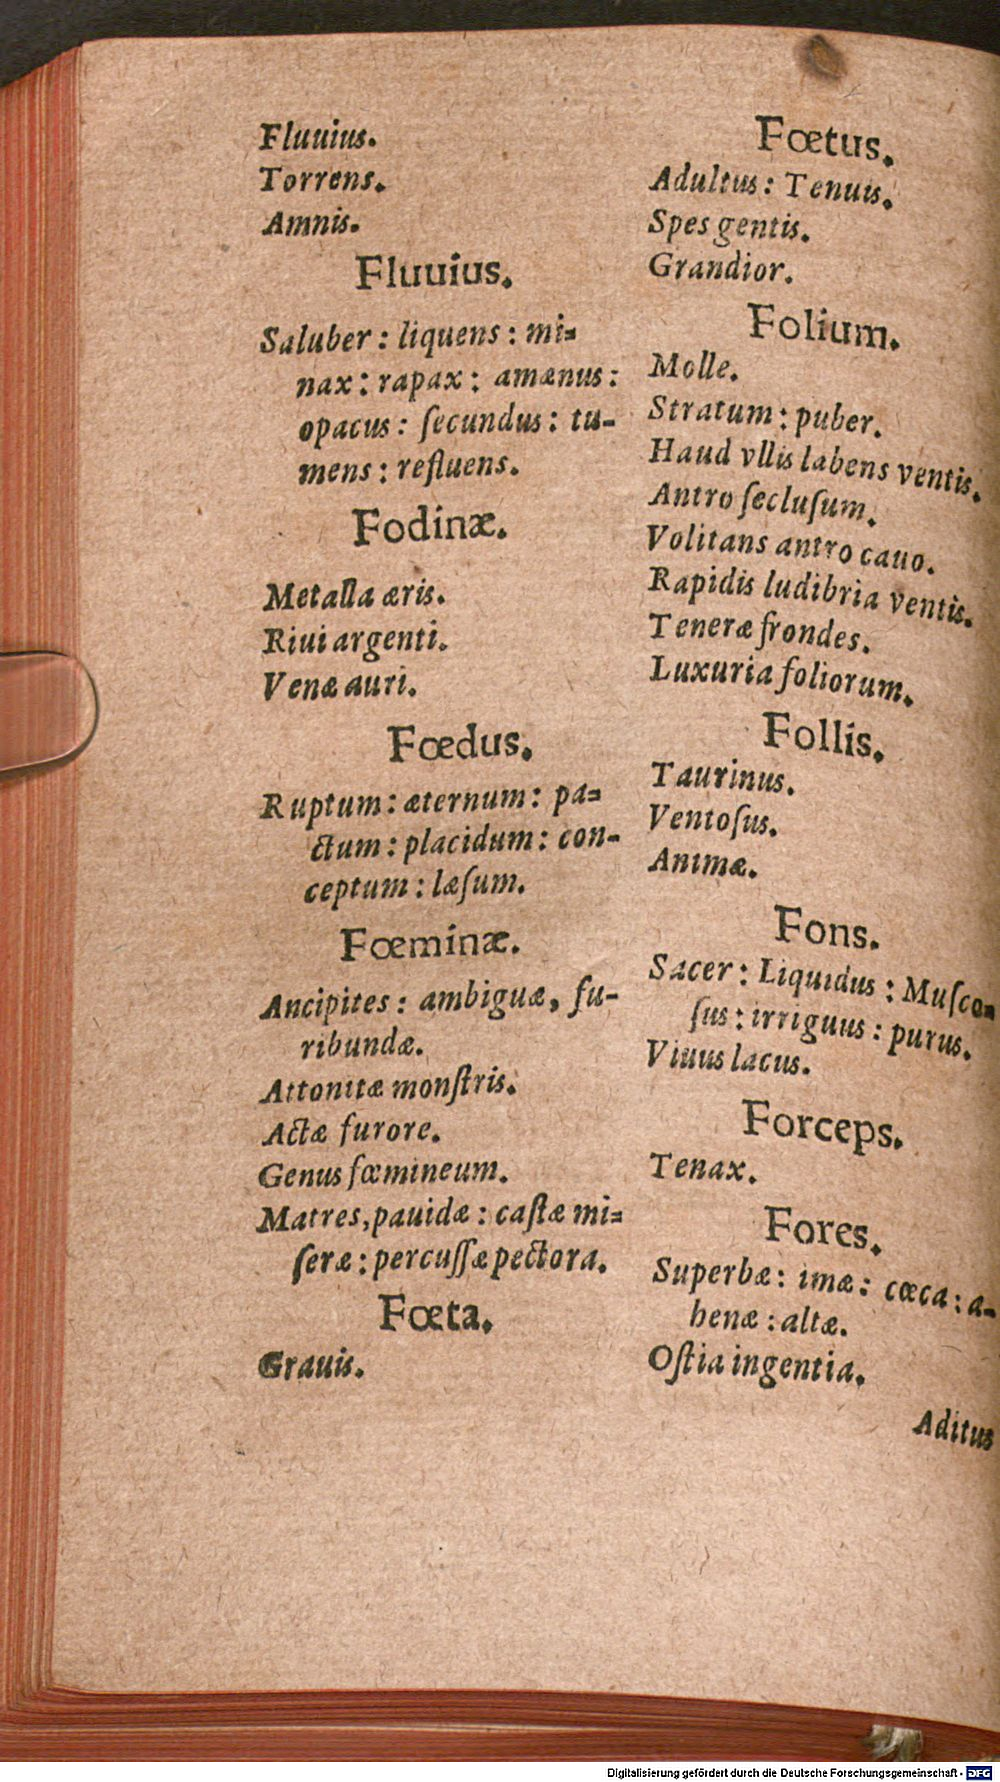 Fluuius.
Torrens.
Amnis.
Fluuius.
Saluber: liquens: mi=
nax: rapax: amænus:
opacus: ſecundus: tu-
mens: refluens.
Fodinæ.
Metalla æris.
Riui argenti.
Venæ auri.
Fœdus.
Ruptum: æternum: pa=
ctum: placidum: con-
ceptum: læſum.
Fœminæ.
Ancipites: ambiguæ, fu-
ribundæ.
Attonitæ monſtris.
Actæ furore.
Genus fœmineum.
Matres, pauidæ: caſtæ mi=
ſeræ: percuſſæ pectora.
Fœta.
Grauis.
Fœtus.
Adultus: Tenuis.
Spes gentis.
Grandior.
Folium.
Molle.
Stratum: puber.
Haud vllis labens ventis.
Antro ſecluſum.
Volitans antro cauo.
Rapidis ludibria ventis.
Teneræ frondes.
Luxuria foliorum.
Follis.
Taurinus.
Ventoſus.
Animæ.
Fons.
Sacer: Liquidus: Muſco=
ſus: irriguus: purus.
Viuus lacus.
Forceps.
Tenax.
Fores.
Superbæ: imæ: cœca: a-
henæ: altæ.
Oſtia ingentia.
Aditus
Digitalisierung gefördert durch die Deutsche Forschungsgemeinschaft - DFG